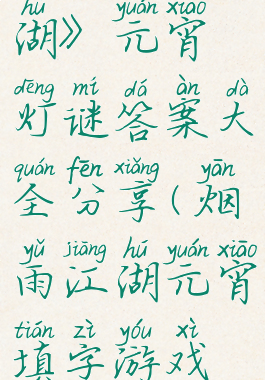 hú yuán xiāo
湖》 元宵
dēng mí dá àn dà
灯谜答案大
quán fēn xiǎng yān
全分享(烟
yǔ jiāng hú yuán xiāo
雨江湖元宵
tián zì yóu xì
填字游戏